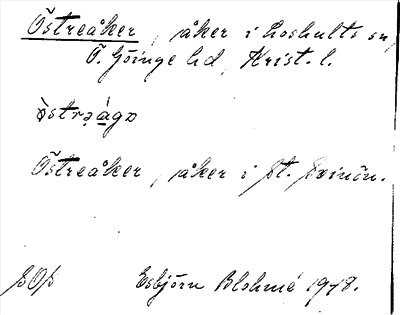 Östreåker, åker i Loshults sn,
Ö. Göinge hd, Krist. l.
östrəágɒ
Östreåker, åker i St.
Esbjörn Blohmé 1948.